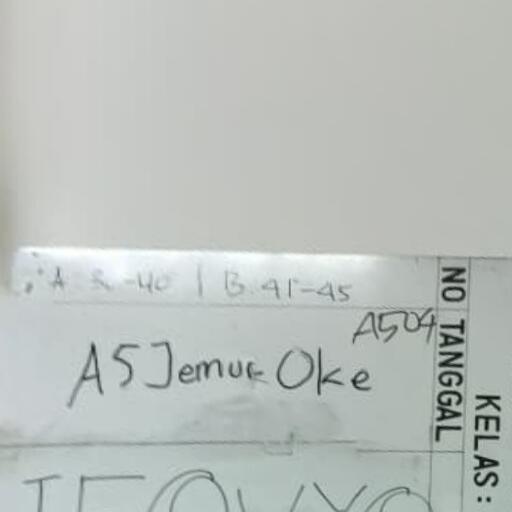 A -40 | B. 41-45
A504
A5 Jemur Oke
NO TANGGAL
KELAS: